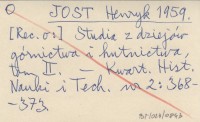 O JOST Henryk 1959.
[Rec. o:] Studia z dziejów
górnictwa i hutnictwa,
tom II. — Kwart. Hist.
Nauki i Tech. nr 2: 368-
-373.